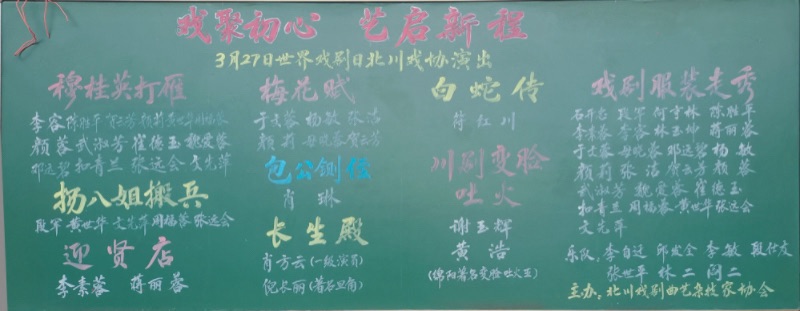 戏聚初心 艺启新程
3月27日世界戏剧日北川戏协演出
穆桂英打雁
李容 陈胜平 黄世华
颜蓉 武淑芳 崔德玉 魏爱蓉
邓远碧 和青兰 张远会 文先萍
杨八姐搬兵
段军 黄世华 文先萍 周福蓉 张远会
迎贤店
李素蓉 蒋丽蓉
梅花赋
于文蓉 杨敏 张洁
颜莉 母晓蓉 贺云芳
包公铡侄
肖琳
长生殿
肖方云(一级演员)
倪长丽(著名旦角)
白蛇传
蒋红川
川剧变脸
吐火
谢玉辉
黄浩
(绵阳著名变脸吐火王)
戏剧服装走秀
段军 何宇林 陈胜平
李素蓉 李容 林玉坤 蒋丽蓉
于文蓉 母晓蓉 邓远碧 杨敏
颜莉 张洁 贺云芳 颜蓉
武淑芳 魏爱蓉 崔德玉
和青兰 周福蓉 黄世华 张远会
文先萍
乐队:李自远 邱发全 李敏 段仕友
张世平 林二 闷二
主办:北川戏剧曲艺杂技家协会